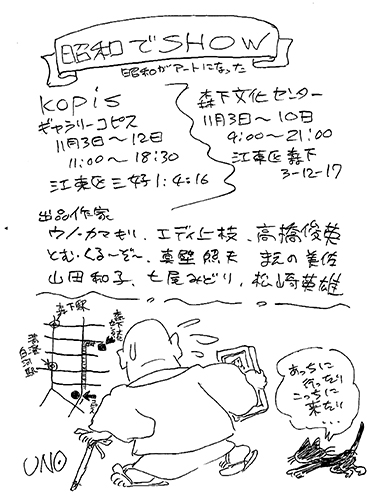 昭和でSHOW
昭和がアートになった
KOPiS
ギャラリーコピス
11月3日〜12日
11:00〜18:30
江東区三好1:4:16
森下文化センター
11月3日〜10日
9:00〜21:00
江東区森下
3-12-17
出品作家
ウノ・カマキリ、エディ上枝、高橋俊英
とむ・くる〜ぞ〜、真壁照夫 まえの美佐
山田和子、七尾みどり、松崎英雄
森下駅
清澄
白河駅
あっちに
行ったり
こっちに
来たり
...
UNO